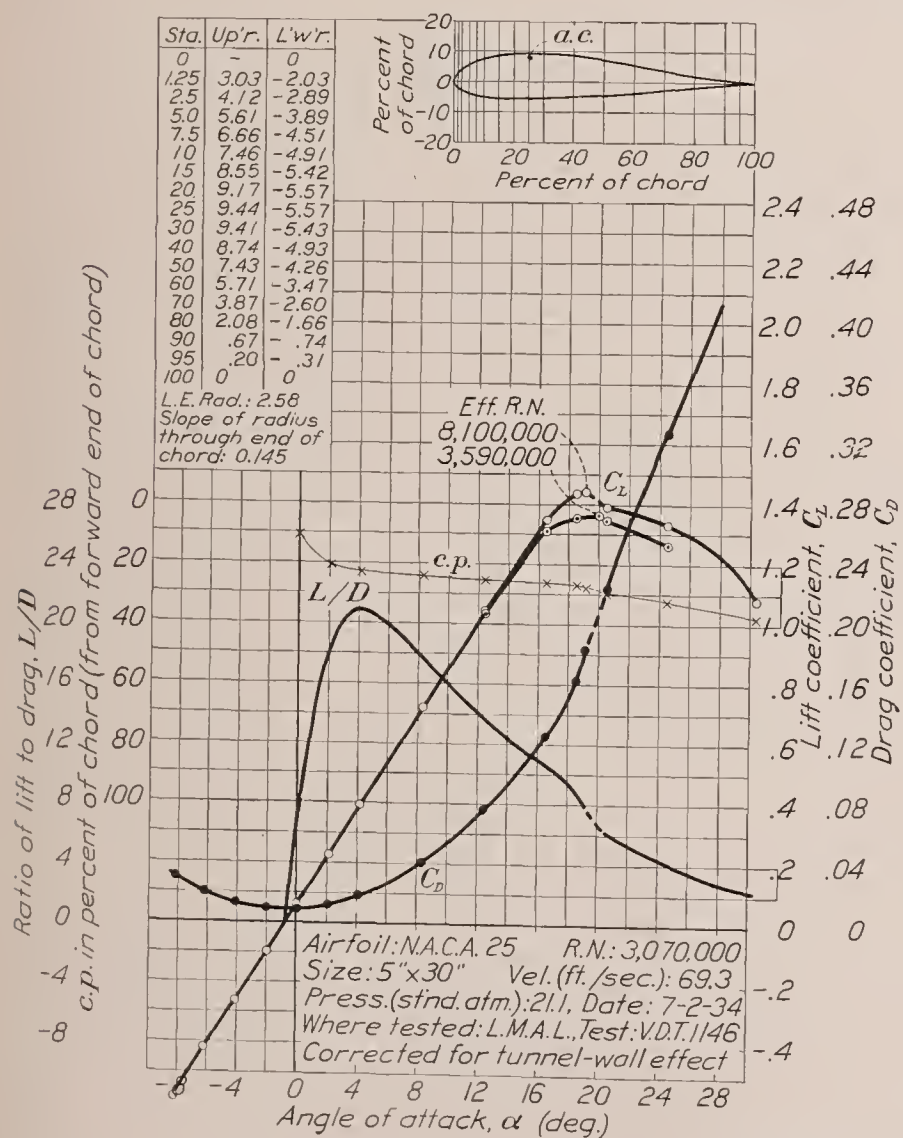 Sta. Up'r. L'w'r.
0 – 0
1.25 3.03 -2.03
2.5 4.12 -2.89
5.0 5.61 -3.89
7.5 6.66 -4.51
10 7.46 -4.91
15 8.55 -5.42
20 9.17 -5.57
25 9.44 -5.57
30 9.41 -5.43
40 8.74 -4.93
50 7.43 -4.26
60 5.71 -3.47
70 3.87 -2.60
80 2.08 -1.66
90 .67 - .74
95 .20 - .31
100 0 0
L.E. Rad.: 2.58
Slope of radius
through end of
chord: 0.145
Percent
of chord
20
10
0
-10
-20
a.c.
0 20 40 60 80 100
Percent of chord
Eff. R.N.
8,100,000
3,590,000
C_L
c.p.
L/D
C_D
Ratio of lift to drag, L/D
28
24
20
16
12
8
4
0
-4
-8
c.p. in percent of chord (from forward end of chord)
0
20
40
60
80
100
2.4 .48
2.2 .44
2.0 .40
1.8 .36
1.6 .32
1.4 .28
1.2 .24
1.0 .20
.8 .16
.6 .12
.4 .08
.2 .04
0 0
-.2
-.4
Lift coefficient, C_L
Drag coefficient, C_D
Airfoil: N.A.C.A. 25 R.N.: 3,070,000
Size: 5"x30" Vel. (ft./sec.): 69.3
Press. (stnd. atm.): 21.1, Date: 7-2-34
Where tested: L.M.A.L., Test: V.D.T. 1146
Corrected for tunnel-wall effect
-8 -4 0 4 8 12 16 20 24 28
Angle of attack, α (deg.)